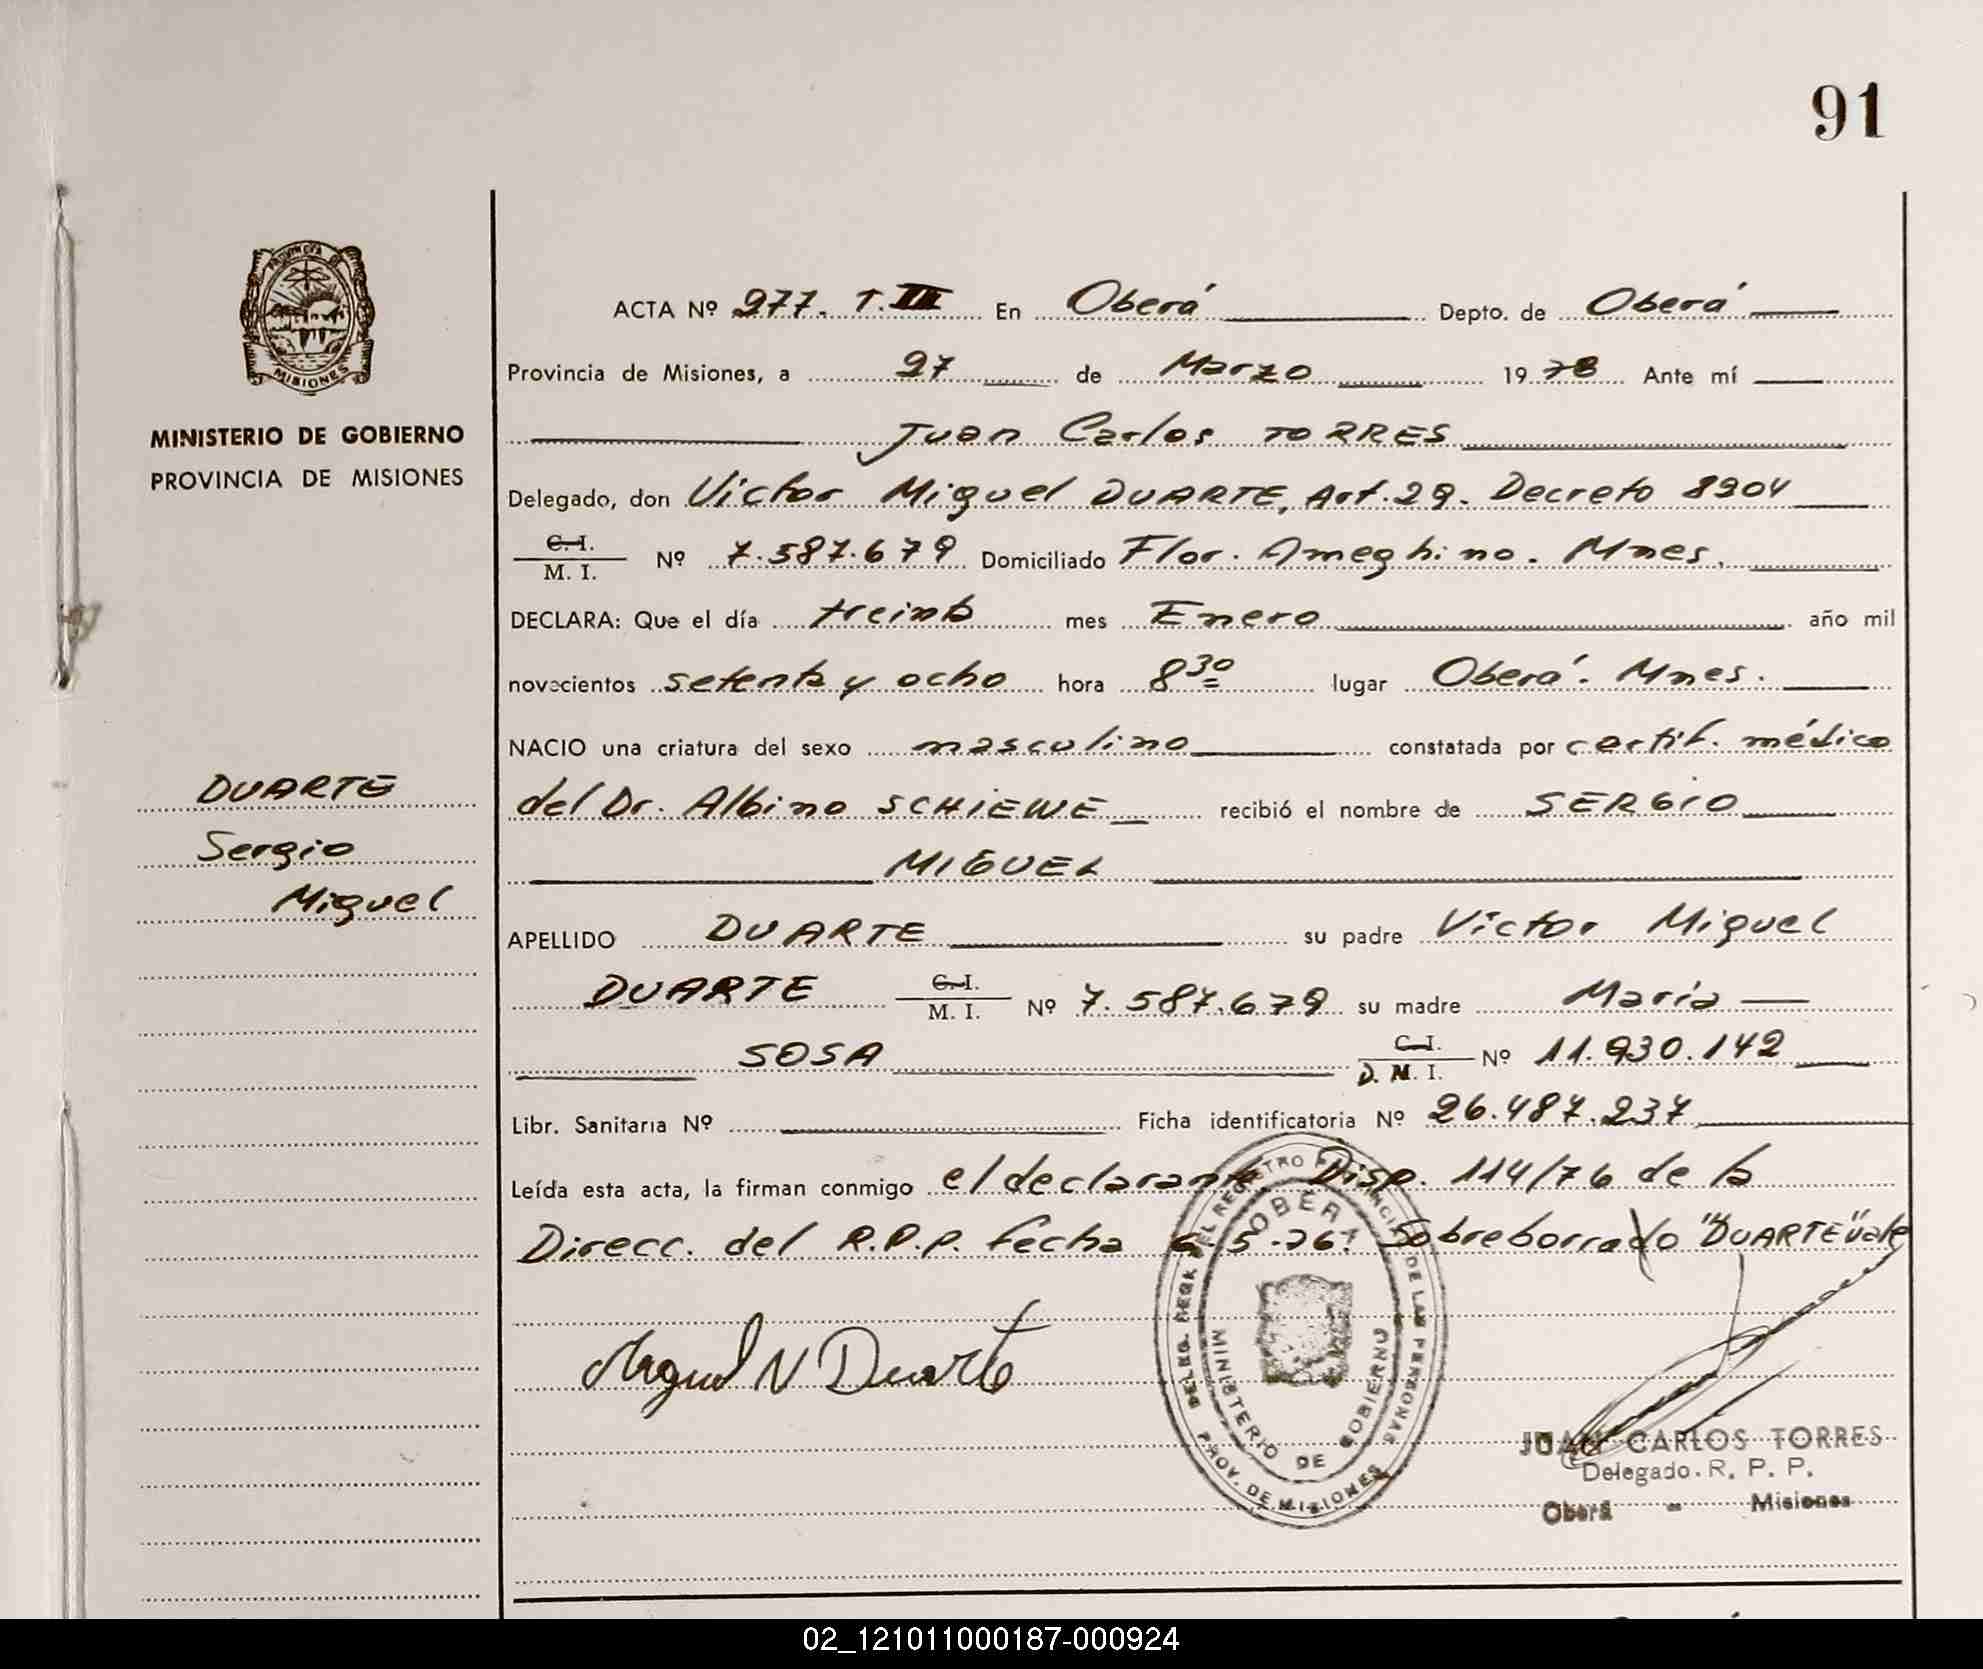 91
PROVINCIA DE
MISIONES
MINISTERIO DE GOBIERNO
PROVINCIA DE MISIONES
DUARTE
Sergio
Miguel
ACTA Nº 277. T. III En Oberá Depto. de Oberá
Provincia de Misiones, a 27 de Marzo 1978 Ante mí
Juan Carlos TORRES
Delegado, don Víctor Miguel DUARTE, Art. 29. Decreto 8904
C. I.
M. I. Nº 7.587.679 Domiciliado Flor. Ameghino. Mnes.
DECLARA: Que el día treinta mes Enero año mil
novecientos setenta y ocho hora 8 30 lugar Oberá. Mnes.
NACIO una criatura del sexo masculino constatada por certif. médico
del Dr. Albino SCHIEWE recibió el nombre de SERGIO
MIGUEL
APELLIDO DUARTE su padre Víctor Miguel
DUARTE C. I. M. I. Nº 7.587.679 su madre María
SOSA C. I. D. M. I. Nº 11.930.142
Libr. Sanitaria Nº Ficha identificatoria Nº 26.487.237
Leída esta acta, la firman conmigo el declarante Disp. 114/76 de la
Direcc. del R.P.P. fecha 6-5-76. Sobreborrado "DUARTE" vale
Miguel V Duarte
OBERA
MINISTERIO DE GOBIERNO
PROV. DE MISIONES
JUAN CARLOS TORRES
Delegado. R. P. P.
Oberá - Misiones
02_121011000187-000924